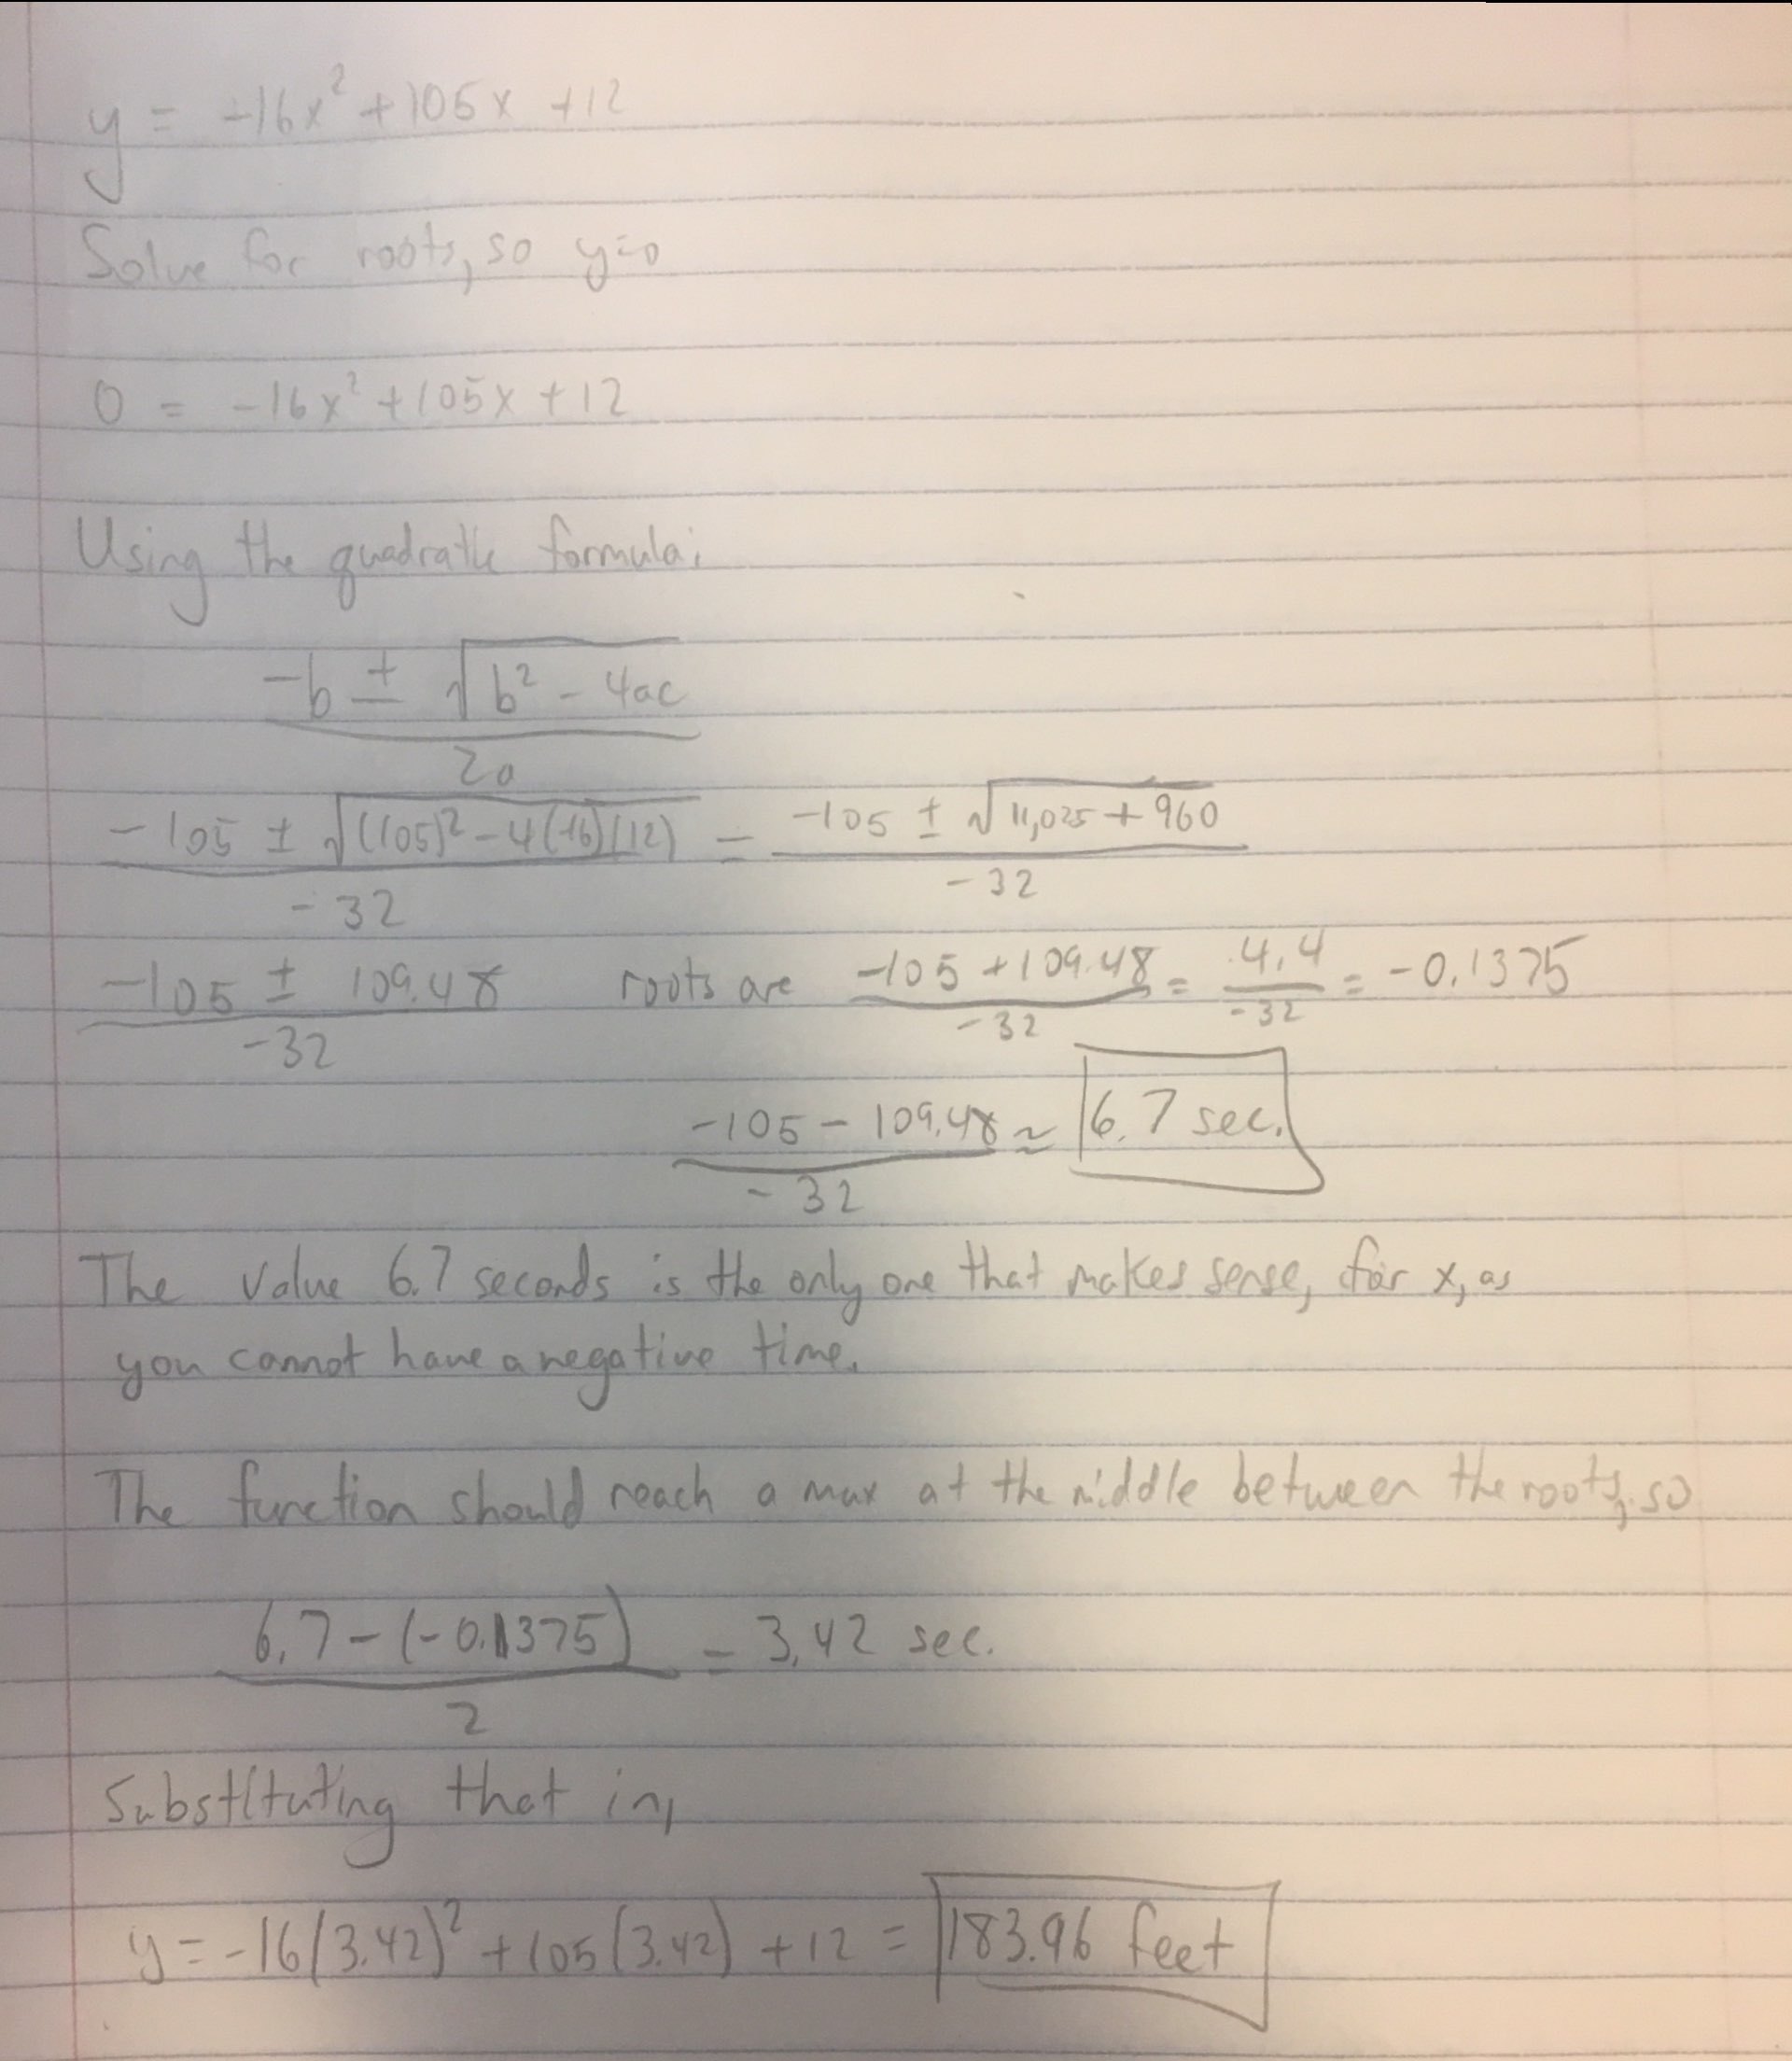 y = -16x² + 105x + 12
Solve for roots, so y=0
0 = -16x² + 105x + 12
Using the quadratic formula:
(-b ± √(b² - 4ac)) / 2a
(-105 ± √((105)² - 4(-16)(12))) / -32 = (-105 ± √(11,025 + 960)) / -32
(-105 ± 109.48) / -32 roots are (-105 + 109.48) / -32 = 4.4 / -32 = -0.1375
(-105 - 109.48) / -32 ≈ 6.7 sec.
The value 6.7 seconds is the only one that makes sense, for x, as
you cannot have a negative time.
The function should reach a max at the middle between the roots, so
(6.7 - (-0.1375)) / 2 = 3.42 sec.
Substituting that in,
y = -16(3.42)² + 105(3.42) + 12 = 183.96 feet